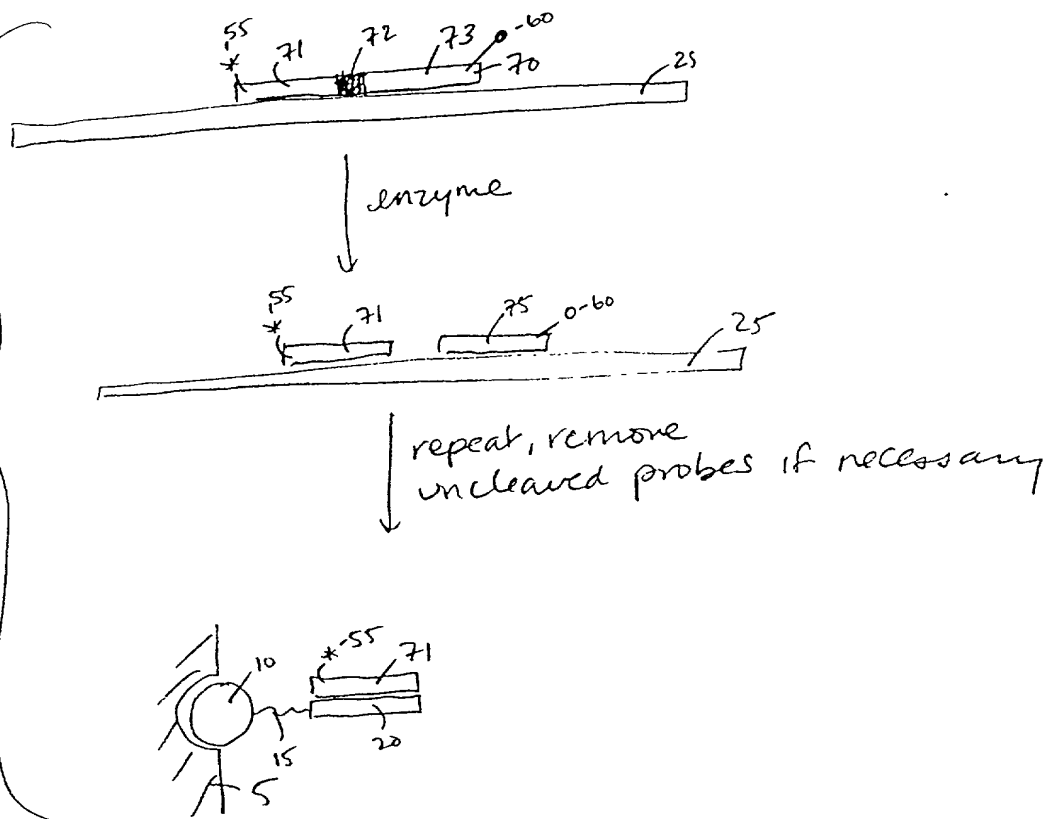 55 71 72 73 -60
* 70 25
enzyme
55 71 75 0-60 25
*
repeat, remove
uncleaved probes if necessary
*-55 71
10
15 20
5